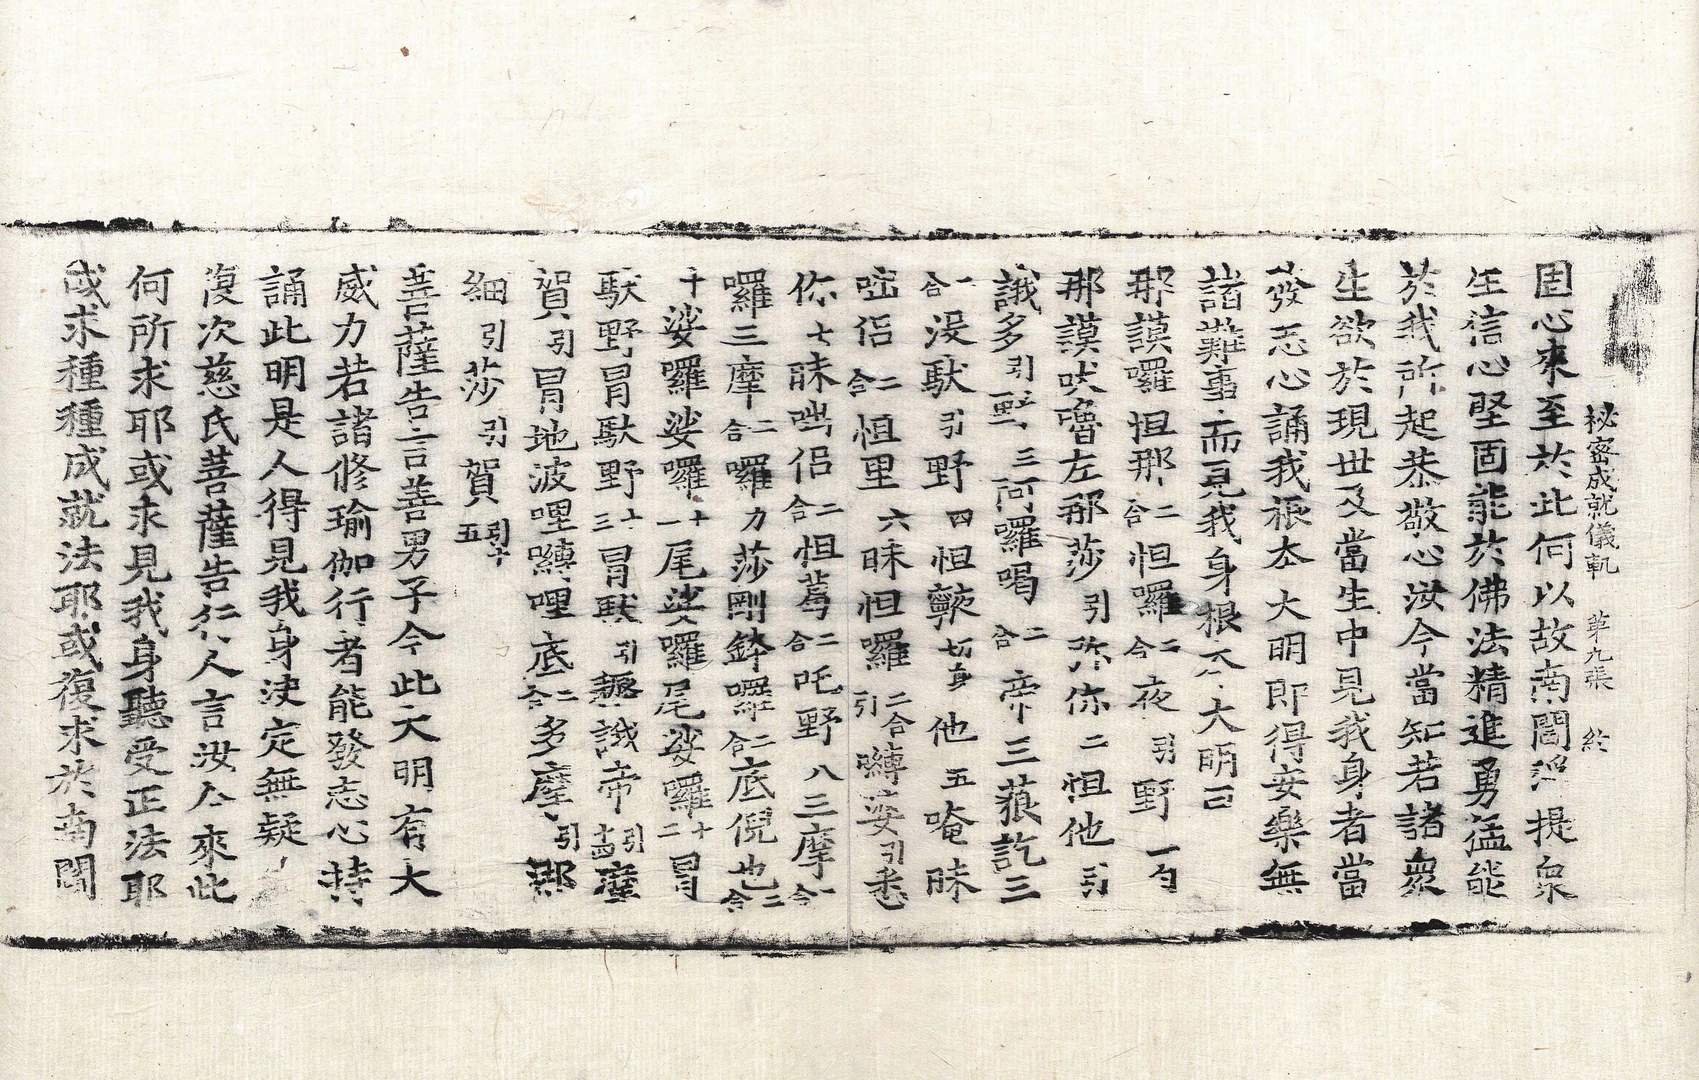 秘密成就儀軌 第九張 給
固心來至於此何以故南閻浮提衆
生信心堅固能於佛法精進勇猛能
於我所起恭敬心汝今當知若諸衆
生欲於現世及當生中見我身者當
發志心誦我根本大明即得安樂無
諸難事而見我身根本大明曰
那謨囉怛那二合怛囉二合夜引野一句
那謨吠嚕左那莎引弥你二怛他引
誐多引野三阿囉喝二合帝三藐訖三
二合沒馱引野四怛𩕳切身他五唵昧
咄侶二合怛里六昧怛囉二合引嚩娑引悉
你七昧咄侶二合怛蒭二合吒野八三摩二合
囉三摩二合囉力莎剛鉢囉二合底倪也二合
十娑囉娑囉十一尾娑囉尾娑囉十二冐
馱野冐馱野十三冐馱引趣誐帝引十四摩
賀引冐地波哩嚩哩底二合多摩引那
細引莎引賀引十五
菩薩告言善男子今此大明有大
威力若諸修瑜伽行者能發志心持
誦此明是人得見我身決定無疑
復次慈氏菩薩告行人言汝今來此
何所求耶或求見我身聽受正法耶
或求種種成就法耶或復求於南閻